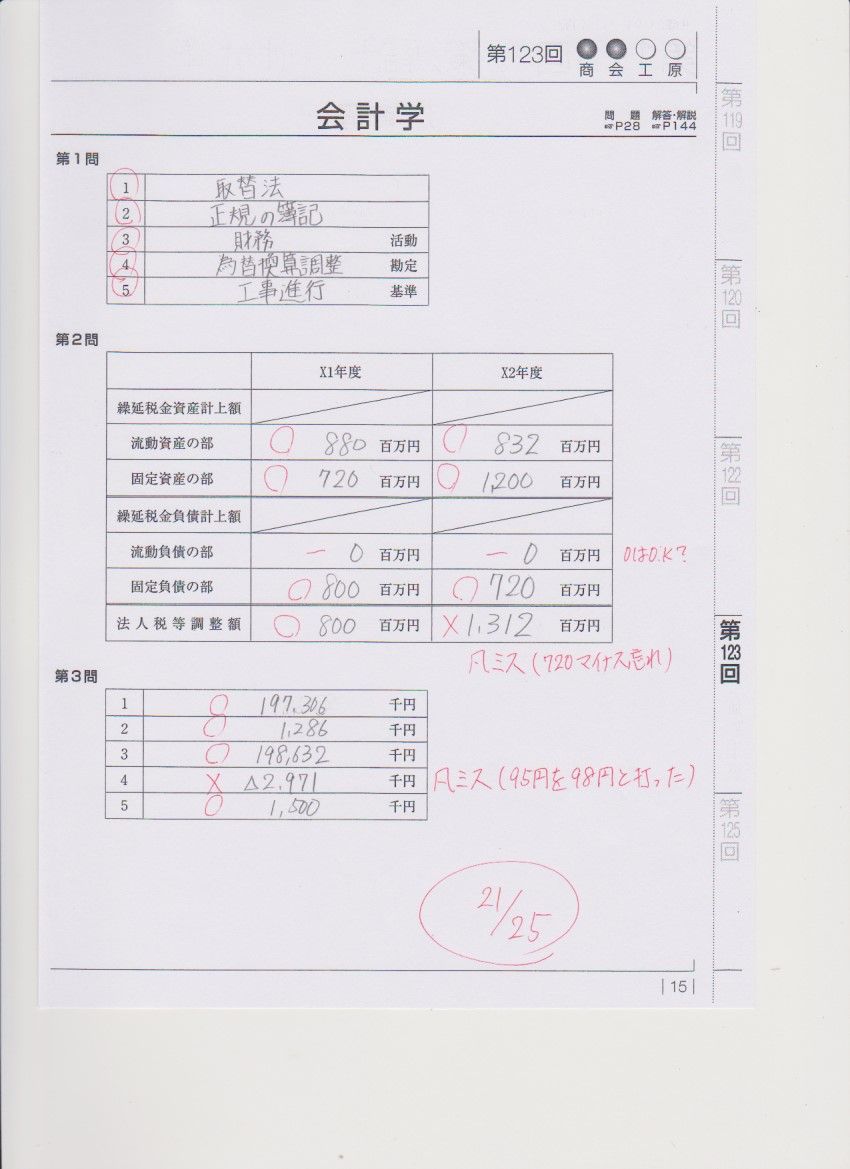 第123回
商 会 工 原
会計学
問題 ☞P28 解答・解説 ☞P144
第1問
1 取替法
2 正規の簿記
3 財務 活動
4 為替換算調整 勘定
5 工事進行 基準
第2問
X1年度 X2年度
繰延税金資産計上額
流動資産の部 ○ 880 百万円 ○ 832 百万円
固定資産の部 ○ 720 百万円 ○ 1,200 百万円
繰延税金負債計上額
流動負債の部 ー 0 百万円 ー 0 百万円 0はO.K?
固定負債の部 ○ 800 百万円 ○ 720 百万円
法人税等調整額 ○ 800 百万円 × 1,312 百万円
凡ミス(720マイナス忘れ)
第3問
1 ○ 197,306 千円
2 ○ 1,286 千円
3 ○ 198,632 千円
4 × △2,971 千円 凡ミス(95円を98円と打った)
5 ○ 1,500 千円
21/25
15
第119回
第120回
第122回
第123回
第125回